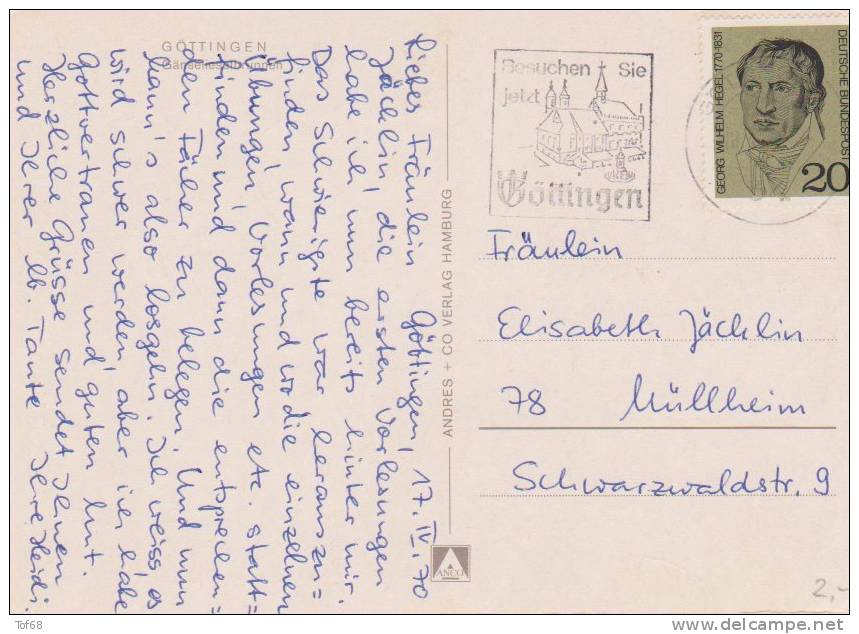 GÖTTINGEN
Gänselieselbrunnen
Göttingen, 17. IV. 70
Liebes Fräulein
Jäcklin, die ersten Vorlesungen
habe ich nun bereits hinter mir.
Das Schwierigste war herauszu=
finden, wann und wo die einzelnen
Übungen, Vorlesungen etc. statt=
finden und dann die entsprechen=
den Fächer zu belegen. Und nun
kann's also losgehn. Ich weiss, es
wird schwer werden, aber ich habe
Gottvertrauen und guten Mut.
Herzliche Grüsse sendet Ihnen
und Ihrer lb. Tante Ihre Heidi.
ANDRES + CO VERLAG HAMBURG
ANCO
Besuchen Sie
jetzt
Göttingen
GEORG WILHELM HEGEL 1770-1831
DEUTSCHE BUNDESPOST
20
Fräulein
Elisabeth Jäcklin
78 Müllheim
Schwarzwaldstr. 9
2,-
Tof68
delcampe.net